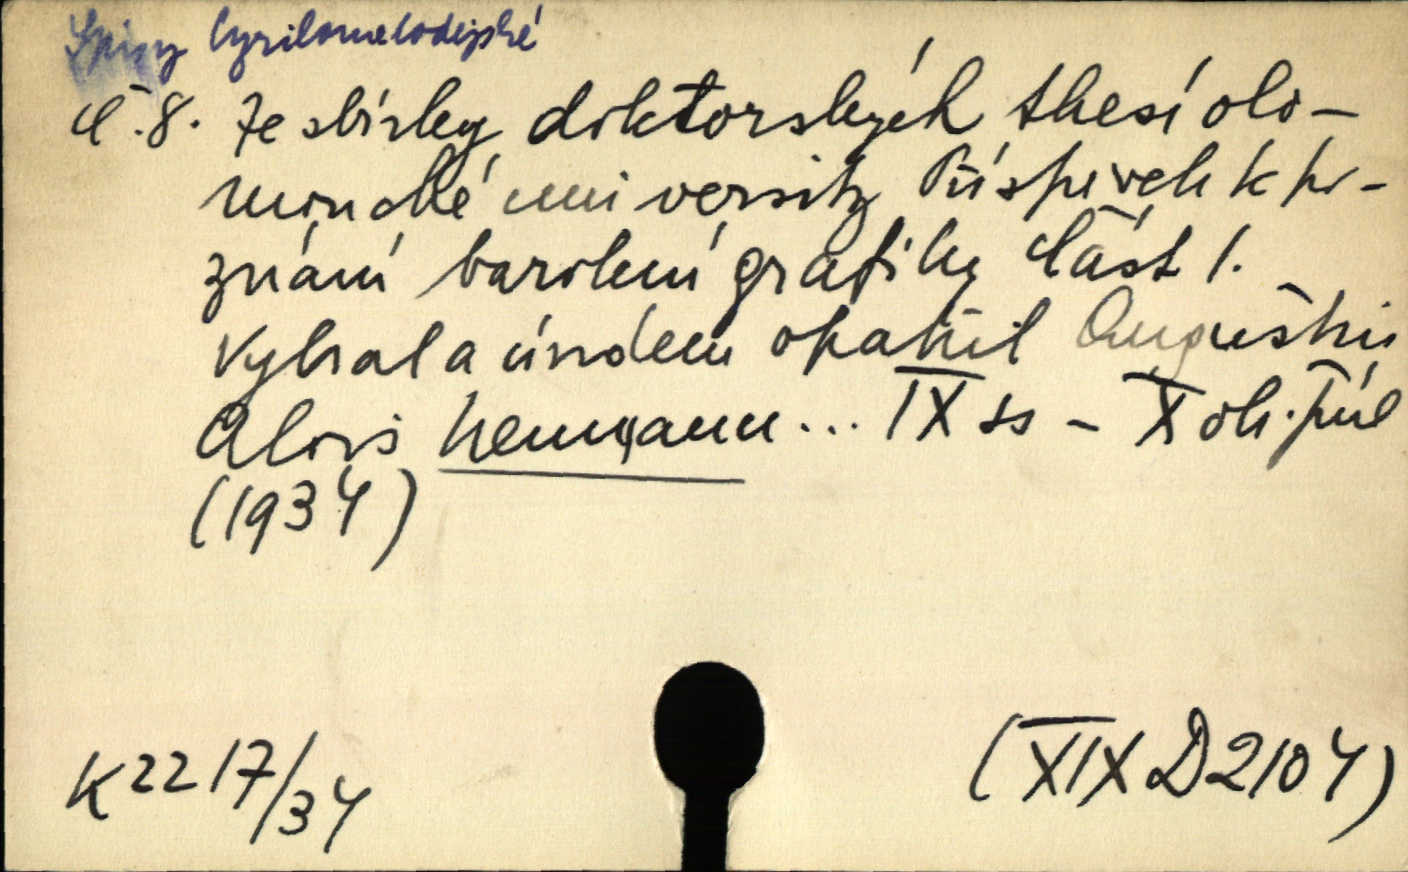 Spisy Cyrilometodějské
Č. 8. Ze sbírky doktorských thesí olo-
moucké university Příspěvek k po-
znání barokní grafiky Část 1.
Vybral a úvodem opatřil Augustin
Alois Neumann... IX ss - X obr. příl
(1934)
K 2217/34
(XIX D 2104)